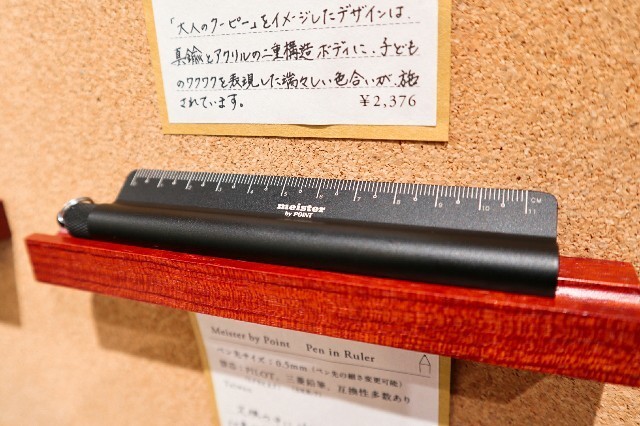 「大人のクーピー」をイメージしたデザインは、
真鍮とアクリルの二重構造ボディに、子ども
のワクワクを表現した瑞々しい色合いが、施
されています。
¥2,376
0 1 2 3 4 5 6 7 8 9 10 11 CM
meister
by POINT
Meister by Point Pen in Ruler
ペン先サイズ：0.5mm（ペン先の細さ変更可能）
替芯：PILOT、三菱鉛筆、互換性多数あり